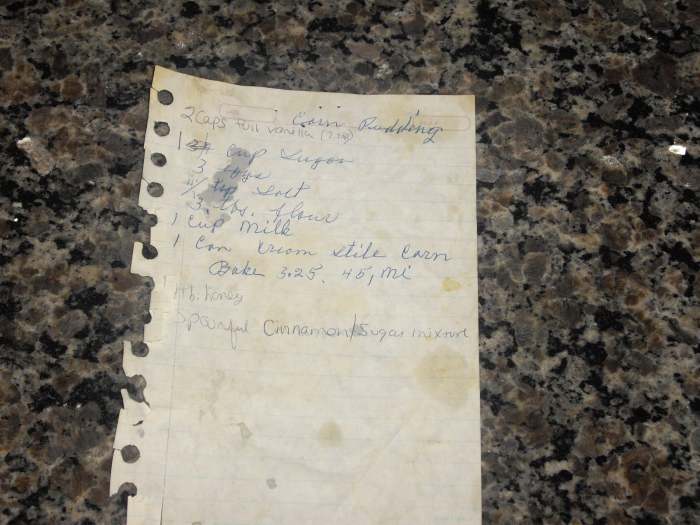 Corn Pudding
2 Caps full vanilla (2 tsp)
1 cup Sugar
3 eggs
tsp Salt
3. tbs. flour
1 cup milk
1 Can kroom stile Corn
Bake 3.25. 45, mi
1 tb. honey
Spoonful Cinnamon/Sugar mixture